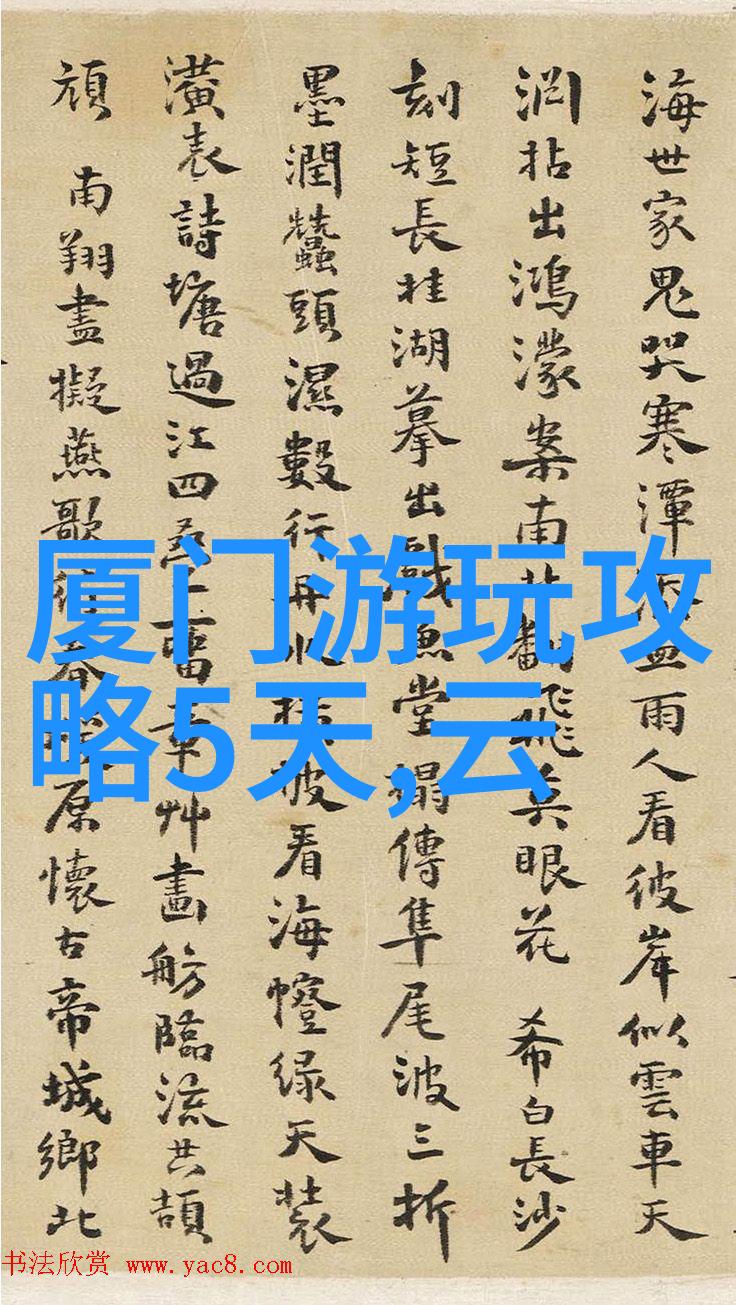 海世家鬼哭寒潭雨人看彼岸似雲車天
渕拈出鴻濛案南翻飛兵眼花 希白長沙
刻短長桂湖摹出戲魚堂搨傳隼尾波三折
墨潤蠶頭濕數行再看海幢綠天裝
潢表詩塘過江四舊章艸畫舫臨流共頡
頏 南翔盡擬燕歌春原懷古帝城鄉北
厦门游玩攻
略5天,云
书法欣赏 www.yac8.com